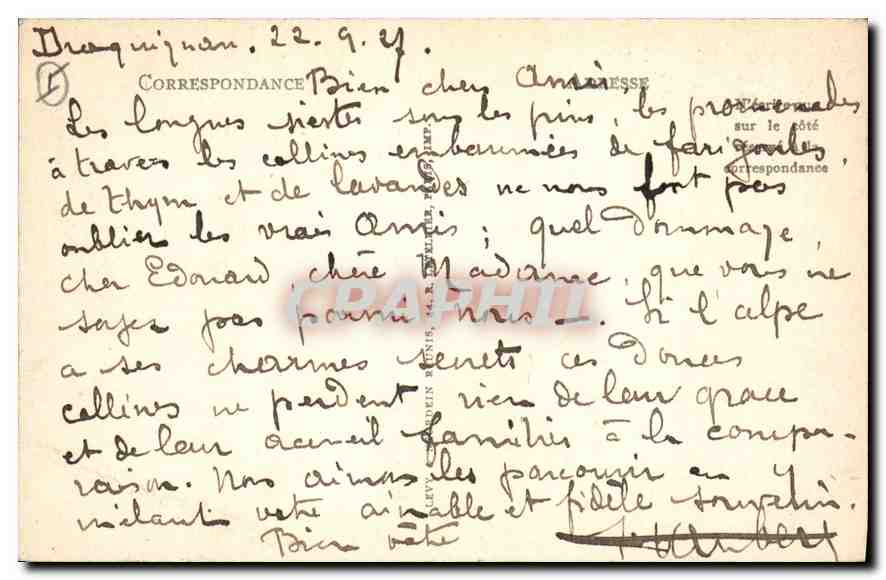 Draguignan. 22.9.27.
CORRESPONDANCE
ADRESSE
Bien chers Amis,
Les longues siestes sous les pins, les promenades
à travers les collines embaumées de farigoules,
de thym et de lavandes ne nous font pas
oublier les vrais Amis ; quel dommage,
cher Edouard, chère Madame, que vous ne
soyez pas parmi nous —. Si l'alpe
a ses charmes secrets ces douces
collines ne perdent rien de leur grace
et de leur accueil familier à la compa-
raison. Nous aimons les parcourir en y
mêlant votre aimable et fidèle souvenir.
Bien vôtre
sur le côté
correspondance
LEVY & NEURDEIN REUNIS, 44, R. LETELLIER, PARIS, IMP.
CPAPHIL